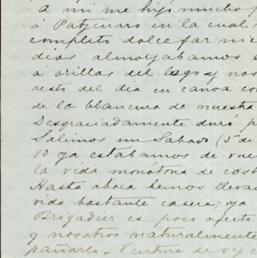 á mi me hizo mucho
á Patzcuaro en la cual
completo dolce far nie
dias almorzabamos
á orillas del lago y nos
resto del dia en canoa co
de la blancura de nuestra
Desgraciadamente duró p
Salimos un Sabado (5 de
10 ya estabamos de vue
la vida monótona de cost
Hasta ahora hemos lleva
vida bastante casera; ya
Brigadier es poco afecto
y nosotros naturalmente
pañarlo.